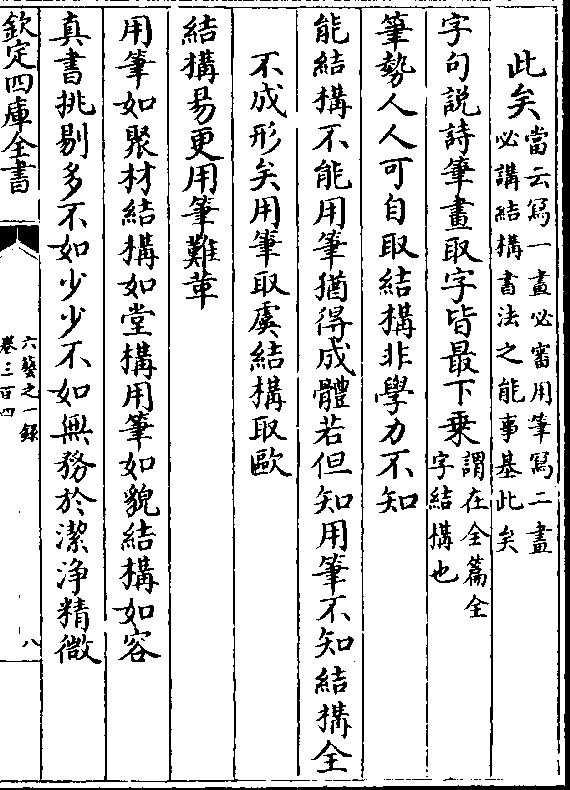 此矣當云寫一畫必審用筆寫二畫
必講結構書法之能事基此矣
字句説詩筆畫取字皆最下乗謂在全篇全
字結構也
筆勢人人可自取結構非學力不知
能結構不能用筆猶得成體若但知用筆不知結構全
不成形矣用筆取虞結構取歐
結構易更用筆難革
用筆如聚材結構如堂構用筆如貌結構如容
真書挑剔多不如少少不如無務於潔浄精微
欽定四庫全書
六藝之一録
卷三百四
八